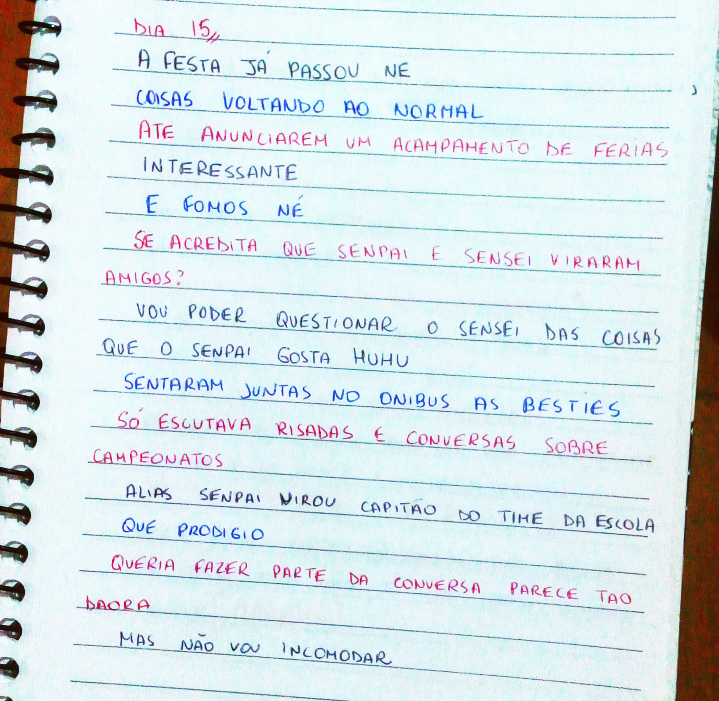 DIA 15,,
A FESTA JÁ PASSOU NE
COISAS VOLTANDO AO NORMAL
ATE ANUNCIAREM UM ACAMPAMENTO DE FERIAS
INTERESSANTE
E FOMOS NÉ
SE ACREDITA QUE SENPAI E SENSEI VIRARAM
AMIGOS?
VOU PODER QUESTIONAR O SENSEI DAS COISAS
QUE O SENPAI GOSTA HUHU
SENTARAM JUNTAS NO ONIBUS AS BESTIES
SÓ ESCUTAVA RISADAS E CONVERSAS SOBRE
CAMPEONATOS
ALIAS SENPAI VIROU CAPITÃO DO TIME DA ESCOLA
QUE PRODIGIO
QUERIA FAZER PARTE DA CONVERSA PARECE TAO
DAORA
MAS NÃO VOU INCOMODAR